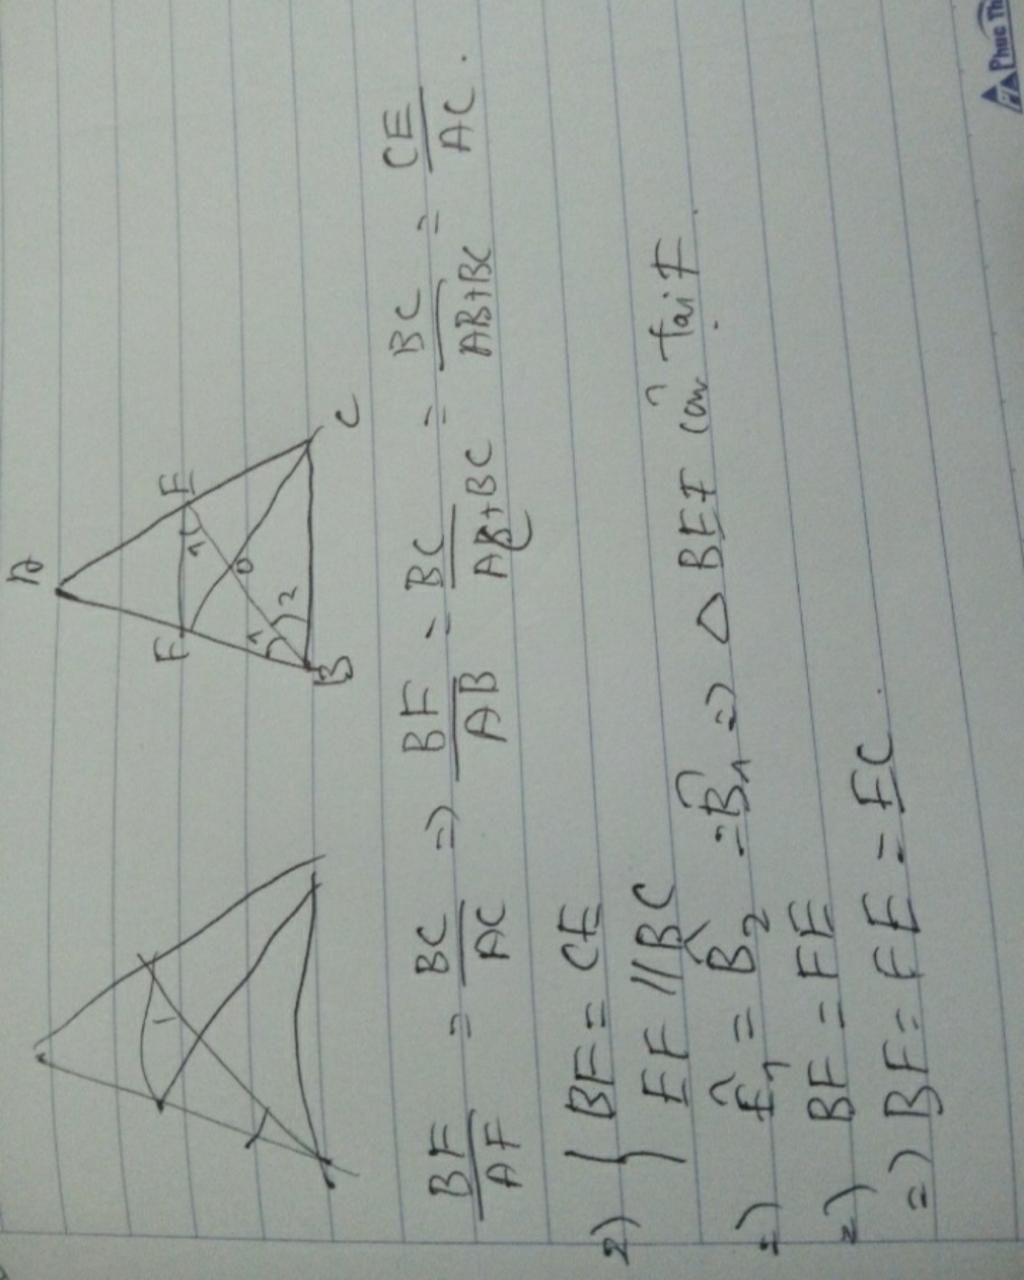 A
F E
1
O
1 2
B C
BF/AF = BC/AC => BF/AB = BC/AC+BC = BC/AB+BC = CE/AC.
=> { BF = CE
EF // BC
=> Ê1 = B̂2 = B̂1 => △ BEF cân tại F.
=> BF = FE
=> BF = FE = EC.
Phuc Th